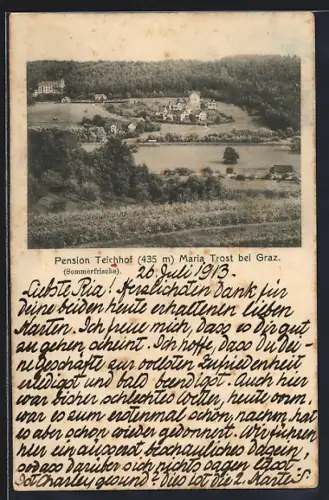 Pension Teichhof (435 m) Maria Trost bei Graz.
(Sommerfrische).
26. Juli 1913.
Liebste Ria! Herzlichsten Dank für
deine beiden heute erhaltenen lieben
Karten. Ich freue mich, dass es dir gut
zu gehen scheint. Ich hoffe, dass du dei-
ne Geschäfte zur vollsten Zufriedenheit
erledigst und bald beendigst. Auch hier
war bisher schlechtes Wetter, heute vorm.
war es zum erstenmal schön, nachm. hat
es aber schon wieder gedonnert. Wir führen
hier ein äusserst beschauliches Dasein,
sodass darüber sich nichts sagen lässt.
Ist Charley gesund? Dies ist die 2. Karte